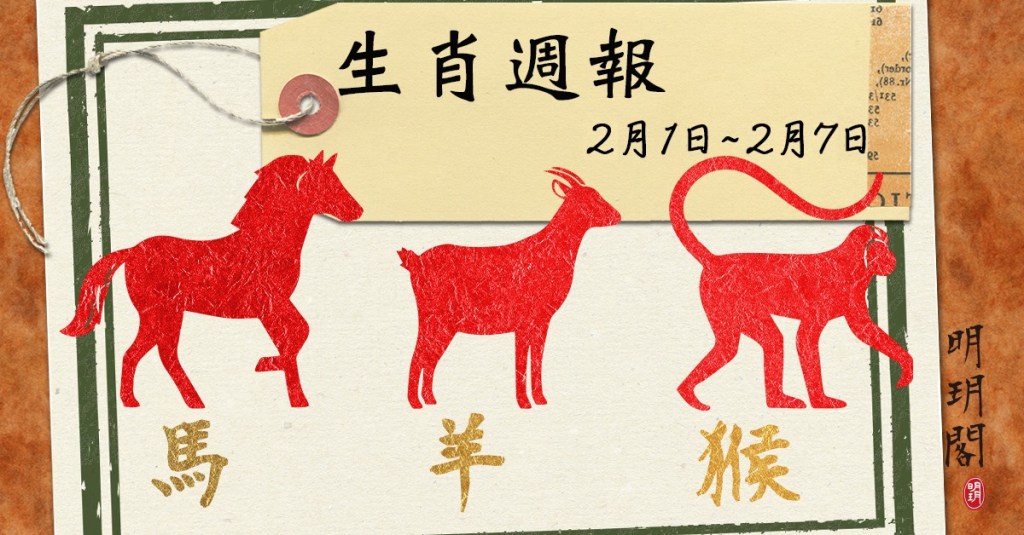 生肖週報
2月1日~2月7日
order),
Nr.88),
馬
羊
猴
明玥閣
明玥